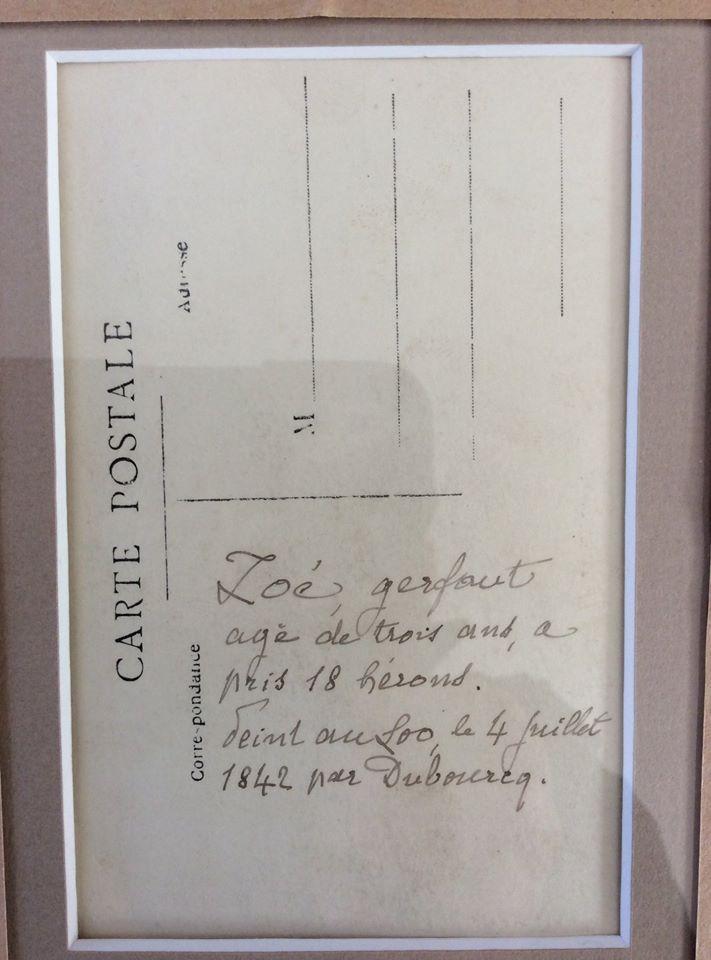 CARTE POSTALE
Correspondance
Adresse
M
Zoé, gerfaut
agé de trois ans, a
pris 18 hérons.
Peint au Loo, le 4 Juillet
1842 par Dubourcq.